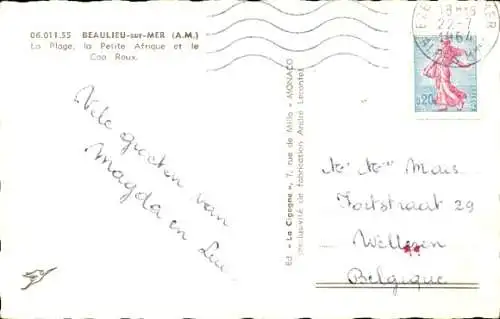 06.011.55 BEAULIEU-sur-MER (A.M.)
La Plage, la Petite Afrique et le
Cap Roux.
Vele groeten van
Magda en
Ed. « La Cigogne », 7, rue de Millo - MONACO
exclusivité de fabrication André Leconte
18H
22-7
1964
0,20
Fortstraat 29
Belgique